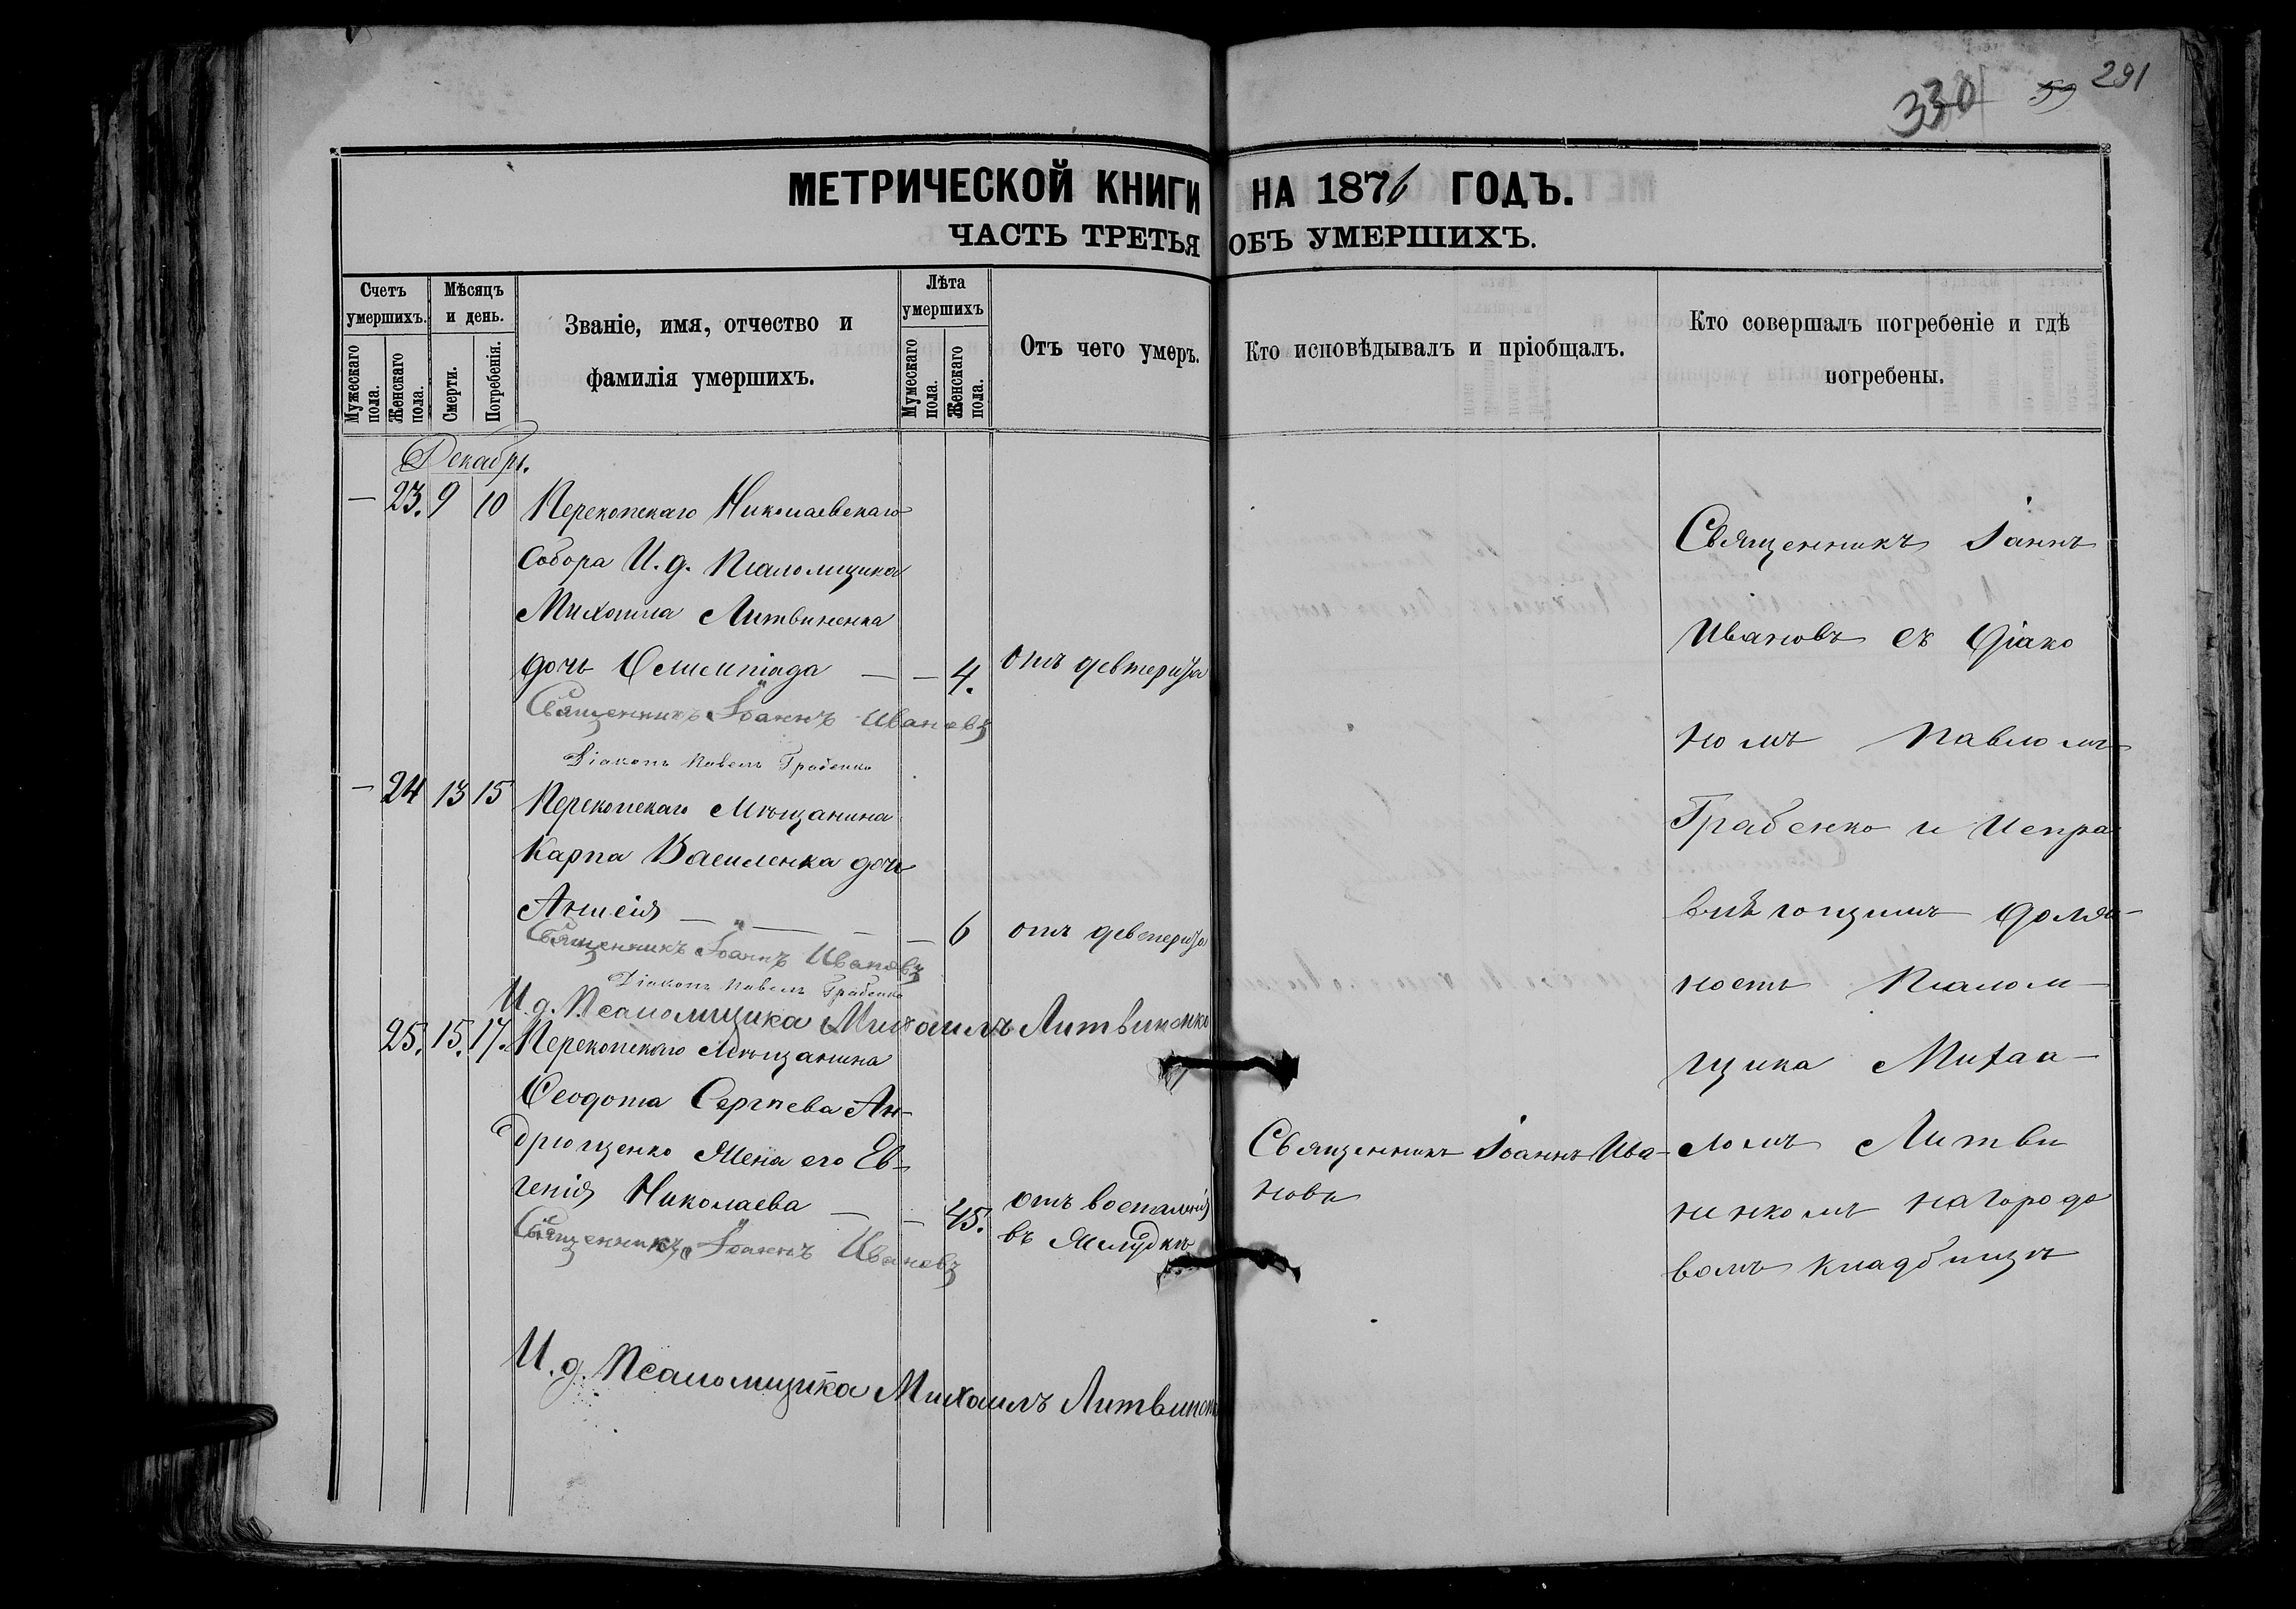 330 59 291
МЕТРИЧЕСКОЙ КНИГИ НА 1876 ГОДЪ.
ЧАСТЬ ТРЕТЬЯ ОБЪ УМЕРШИХЪ.
Счетъ умершихъ.
Мужескаго пола.
Женскаго пола.
Мѣсяцъ и день.
Смерти.
Погребенія.
Званіе, имя, отчество и
фамилія умершихъ.
Лѣта умершихъ
Мумескаго пола.
Женскаго пола.
Отъ чего умеръ.
Кто исповѣдывалъ и пріобщалъ.
Кто совершалъ погребеніе и гдѣ
погребены.
Декабрь.
— 23. 9 10 Перекопскаго Николаевскаго
Собора И. д. Псаломщика
Михаила Литвиненка
дочь Олимпіада — — 4. отъ дефтерита
Священникъ Іоаннъ Ивановъ
Діаконъ Павелъ Грабенко
— 24 13 15 Перекопскаго Мѣщанина
Карпа Василенка дочь
Анисія — — — 6 отъ дефтерита
Священникъ Іоаннъ Ивановъ
Діаконъ Павелъ Грабенко
И. д. Псаломщика Михаилъ Литвиненко
25. 15. 17. Перекопскаго Мѣщанина
Ѳеодота Сергѣева Ан-
дрющенко Жена его Ев-
генія Николаева — — 45. отъ воспаленія
въ Желудкѣ
Священникъ Іоаннъ Ивановъ
И. д. Псаломщика Михаилъ Литвиненко
Священникъ Іоаннъ Ива-
новъ
Священникъ Іаннъ
Ивановъ съ Діако
номъ Павломъ
Грабенко и Испра
вляющимъ долж-
ность Псалом-
щика Михаи-
ломъ Литви
ненкомъ на городо
вомъ кладбищѣ